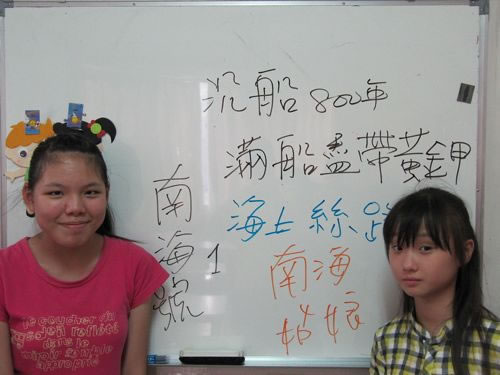 沉船 800年
滿船盡帶黃金甲
海上絲路
南海
姑娘
南海 1 號
le coucher du
soleil reflète
dans le
miroir
approprie